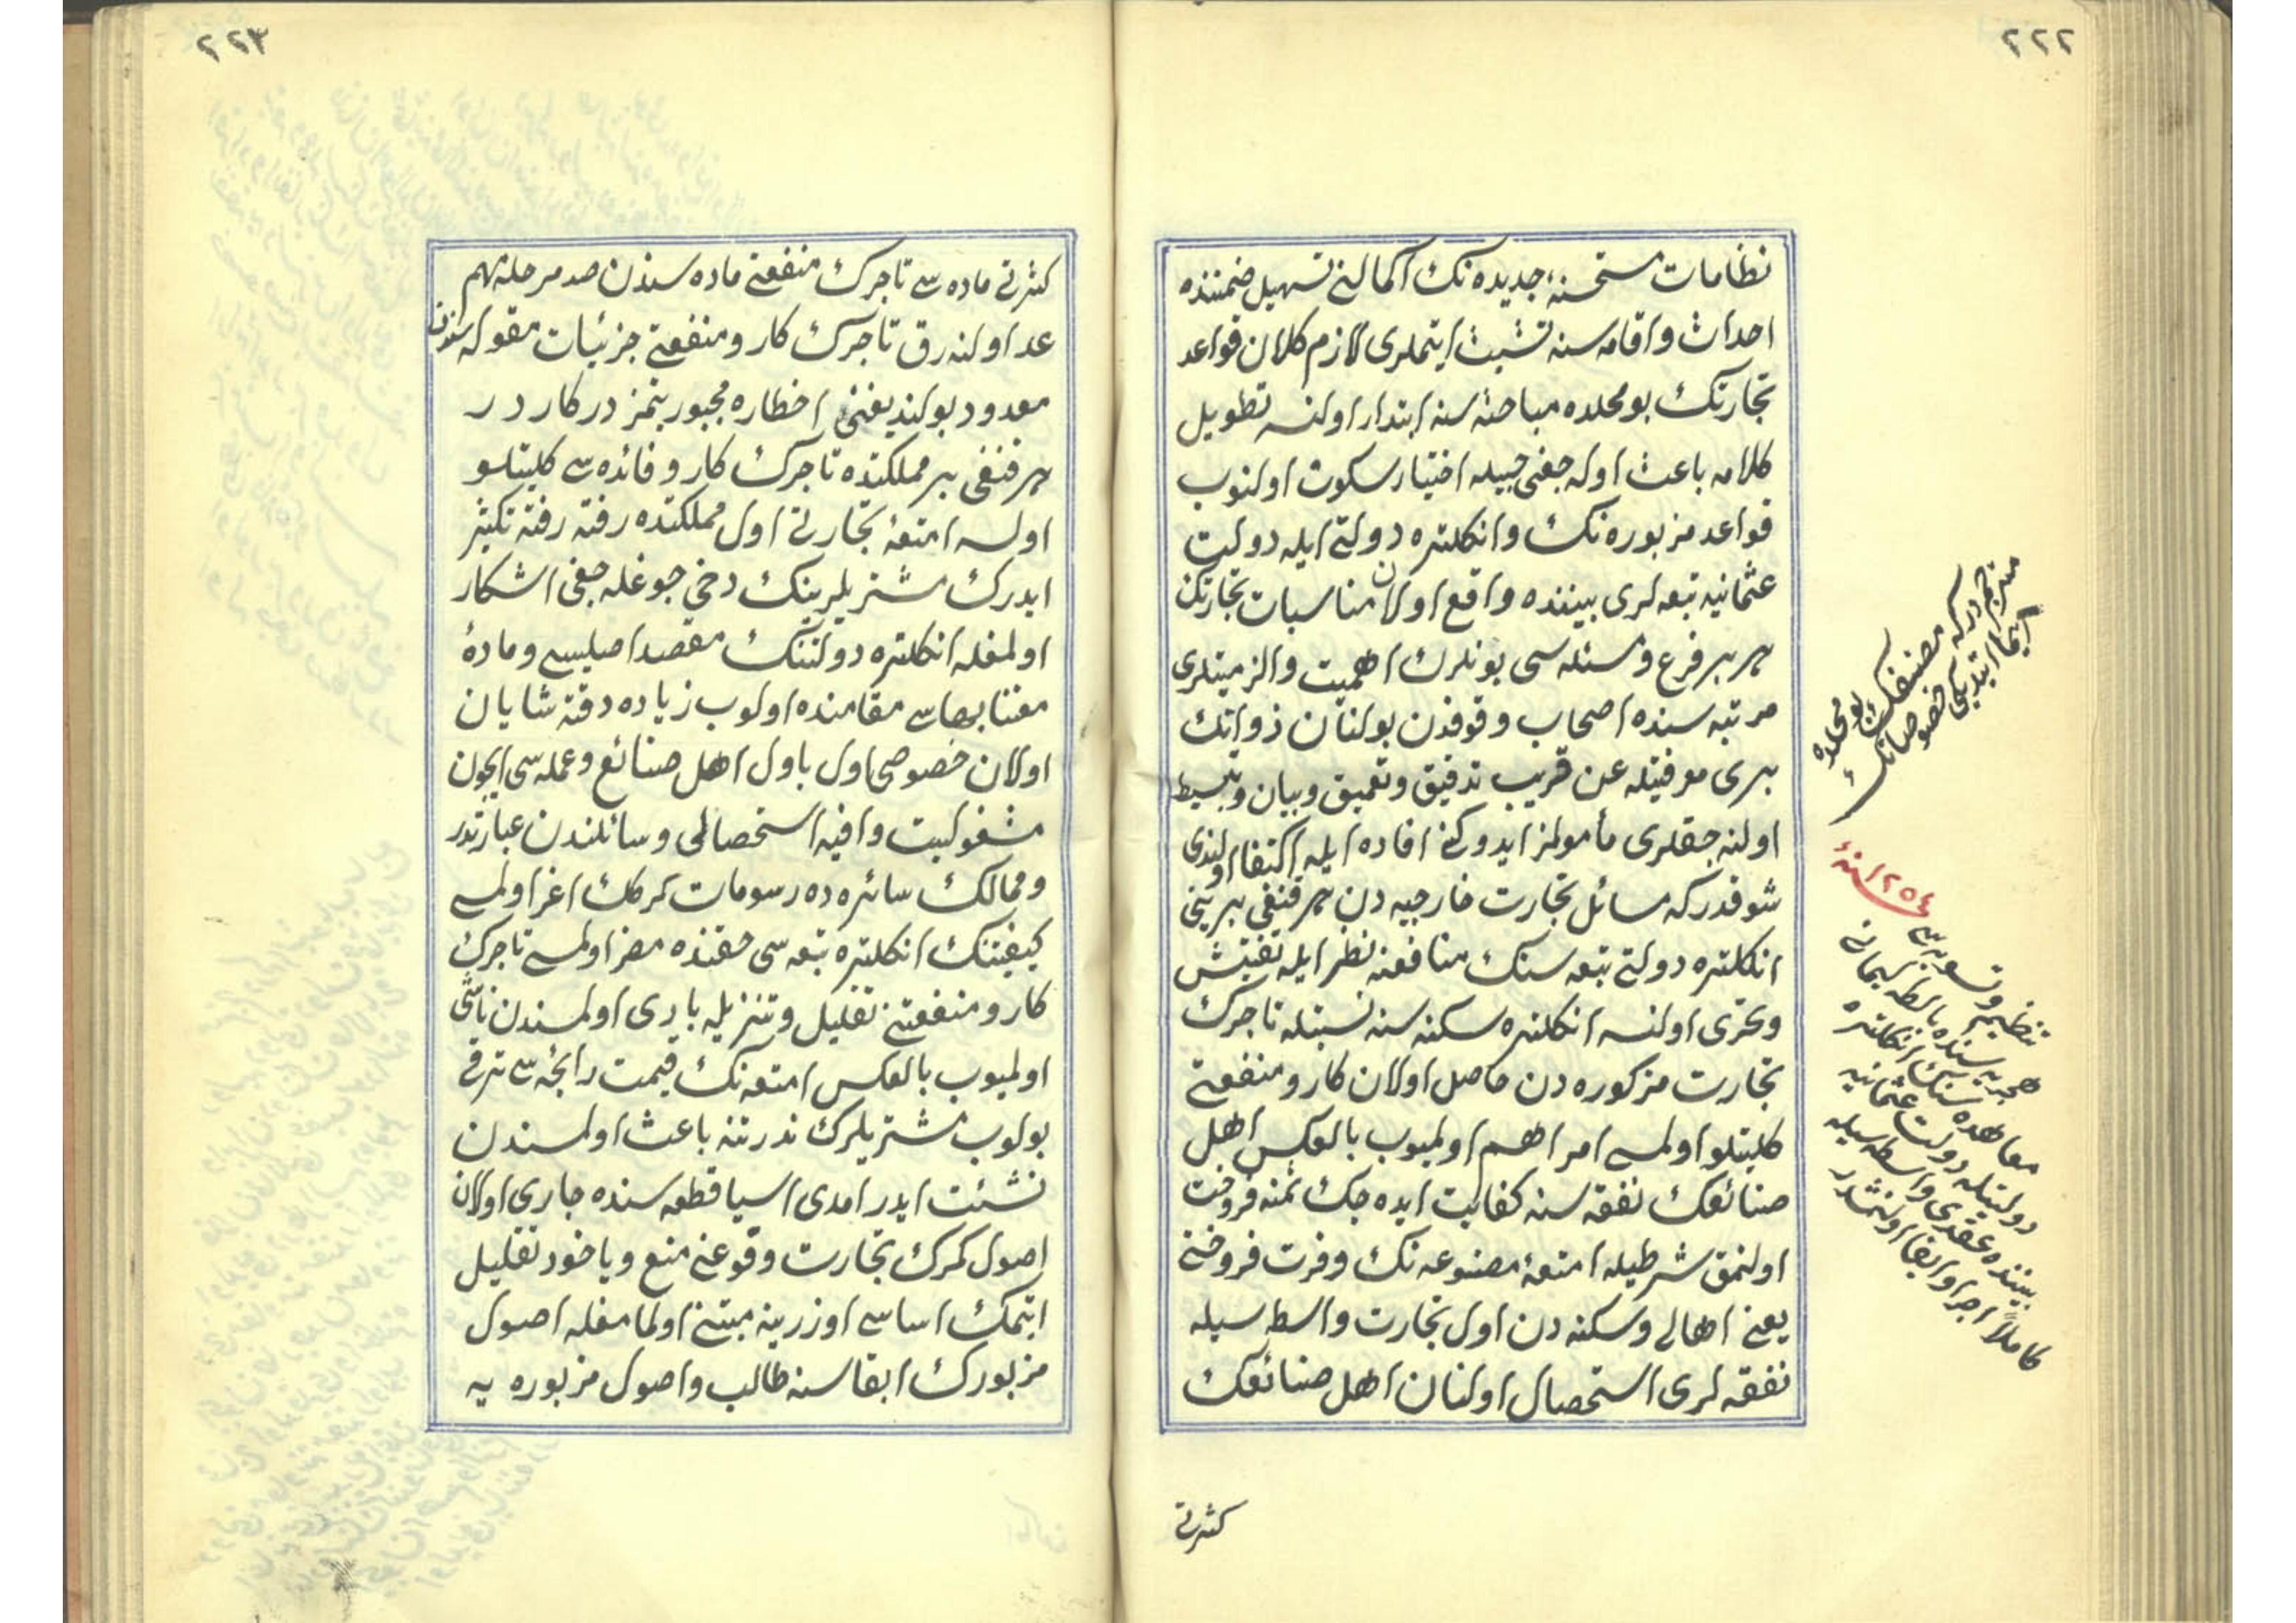 ٢٢٢
نظامات مستحسنهٔ جدیده نك اكمالنی تسهیل ضمننده
احداث واقامه سنه تشبث ایتملری لازم كلان قواعد
تجارتك بو محلده مباحثه سنه ابتدار اولنسه تطویل
كلامه باعث اوله جغی جهتله اختیار سكوت اولنوب
قواعد مزبوره نك وانكلتره دولتی ایله دولت
عثمانیه تبعه لری بیننده واقع اولان مناسبات تجارتك
هر بر فرع ومسئله سی بونلرك اهمیت والزمیتلری
مرتبه سنده اصحاب وقوفدن بولنان ذواتك
بری معرفتیله عن قریب تدقیق وتعمیق وبیان وتبسیط
اولنه جقلری مأمولمز ایدوكنی افاده ایله اكتفا اولندی
شو قدر كه مسائل تجارت خارجیه دن هر قنغی برینی
انكلتره دولتی تبعه سنك منافعنه نظر ایله تفتیش
وتحری اولنسه انكلتره سكنه سنه نسبتله تاجرك
تجارت مزكوره دن حاصل اولان كار ومنفعتی
كلیتلو اولمسی امر اهم اولمیوب بالعكس اهل
صنائعك نفقه سنه كفایت ایده جك ثمنه فروخت
اولنمق شرطیله امتعهٔ مصنوعه نك وفرت فروختی
یعنی اهالی وسكنه دن اول تجارت واسطه سیله
نفقه لری استحصال اولنان اهل صنائعك
كثرتی
مترجم دركه مصنفك بو محلده
ایما ایتدیكی خصوصاتك
١٢٥٤ سنهٔ
تنظیم وتسویه سی
هجریه سنده بالطه لیماننی
معاهده سنك انكلتره
دولتیله دولت عثمانیه
بیننده عقدی واسطه سیله
كاملاً اجرا وایفا اولنمشدر
٢٢٣
كثرتی ماده سی تاجرك منفعتی ماده سندن صد مرحله مهم
عد اولنه رق تاجرك كار ومنفعتی جزئیات مقوله سندن
معدود بولندیغنی اخطاره مجبوریتمز دركار در
هر قنغی بر مملكتده تاجرك كار وفائده سی كلیتلو
اولسه امتعهٔ تجارتی اول مملكتده رفته رفته تكثیر
ایدرك مشتریلرینك دخی چوغله جغی اشكار
اولمغله انكلتره دولتنك مقصد اصلیسی ومادهٔ
معتنا بهاسی مقامنده اولوب زیاده دقته شایان
اولان خصوصی اول باول اهل صنائع وعمله سی ایچون
مشغولیت وافیه استحصالی وسائلندن عبارتدر
وممالك سائره ده رسومات كمركك اغر اولمسی
كیفیتنك انكلتره تبعه سی حقنده مضر اولمسی تاجرك
كار ومنفعتنی تقلیل وتنزیله بادی اولمسندن ناشی
اولمیوب بالعكس امتعه نك قیمت رائجه سی ترقی
بولوب مشتریلرك ندرتنه باعث اولمسندن
نشئت ایدر امدی اسیا قطعه سنده جاری اولان
اصول كمرك تجارت وقوعنی منع ویاخود تقلیل
ایتمك اساسی اوزرینه مبتنی اولمامغله اصول
مزبورك ابقاسنه طالب واصول مزبوره یه